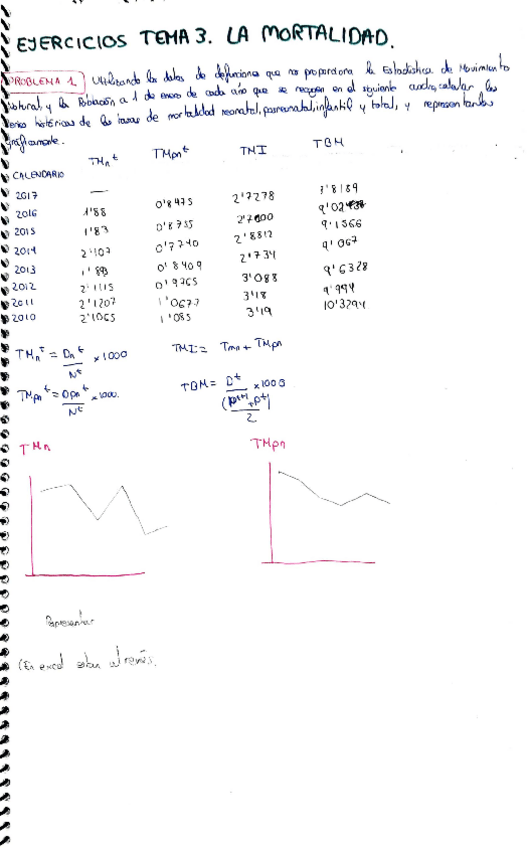 EJERCICIOS TEMA 3. LA MORTALIDAD.
PROBLEMA 1. Utilizando los datos de defunciones que nos proporciona la Estadística de Movimiento
Natural y la Población a 1 de enero de cada año que se recogen en el siguiente cuadro, calcular las
series históricas de las tasas de mortalidad neonatal, posneonatal, infantil y total, y representarlas
gráficamente.
CALENDARIO TMn^t TMpn^t TMI TBM
2017 —
2016 1'88 0'8475 2'7278
2015 1'83 0'8755 2'7000
2014 2'107 0'7740 2'8812 9'1366
2013 1'893 0'8409 2'734 9'067
2012 2'1115 0'9765 3'088 9'6328
2011 2'1207 1'0677 3'18 9'994
2010 2'1065 1'085 3'19 10'3294
TMn^t = Dn^t / N^t × 1000 TMI = Tmn + TMpn
TMpn^t = Dpn^t / N^t × 1000. TBM = D^t / ((P^t+1 + P^t) / 2) × 1000
TMn TMpn
Representar
(En excel están al revés.